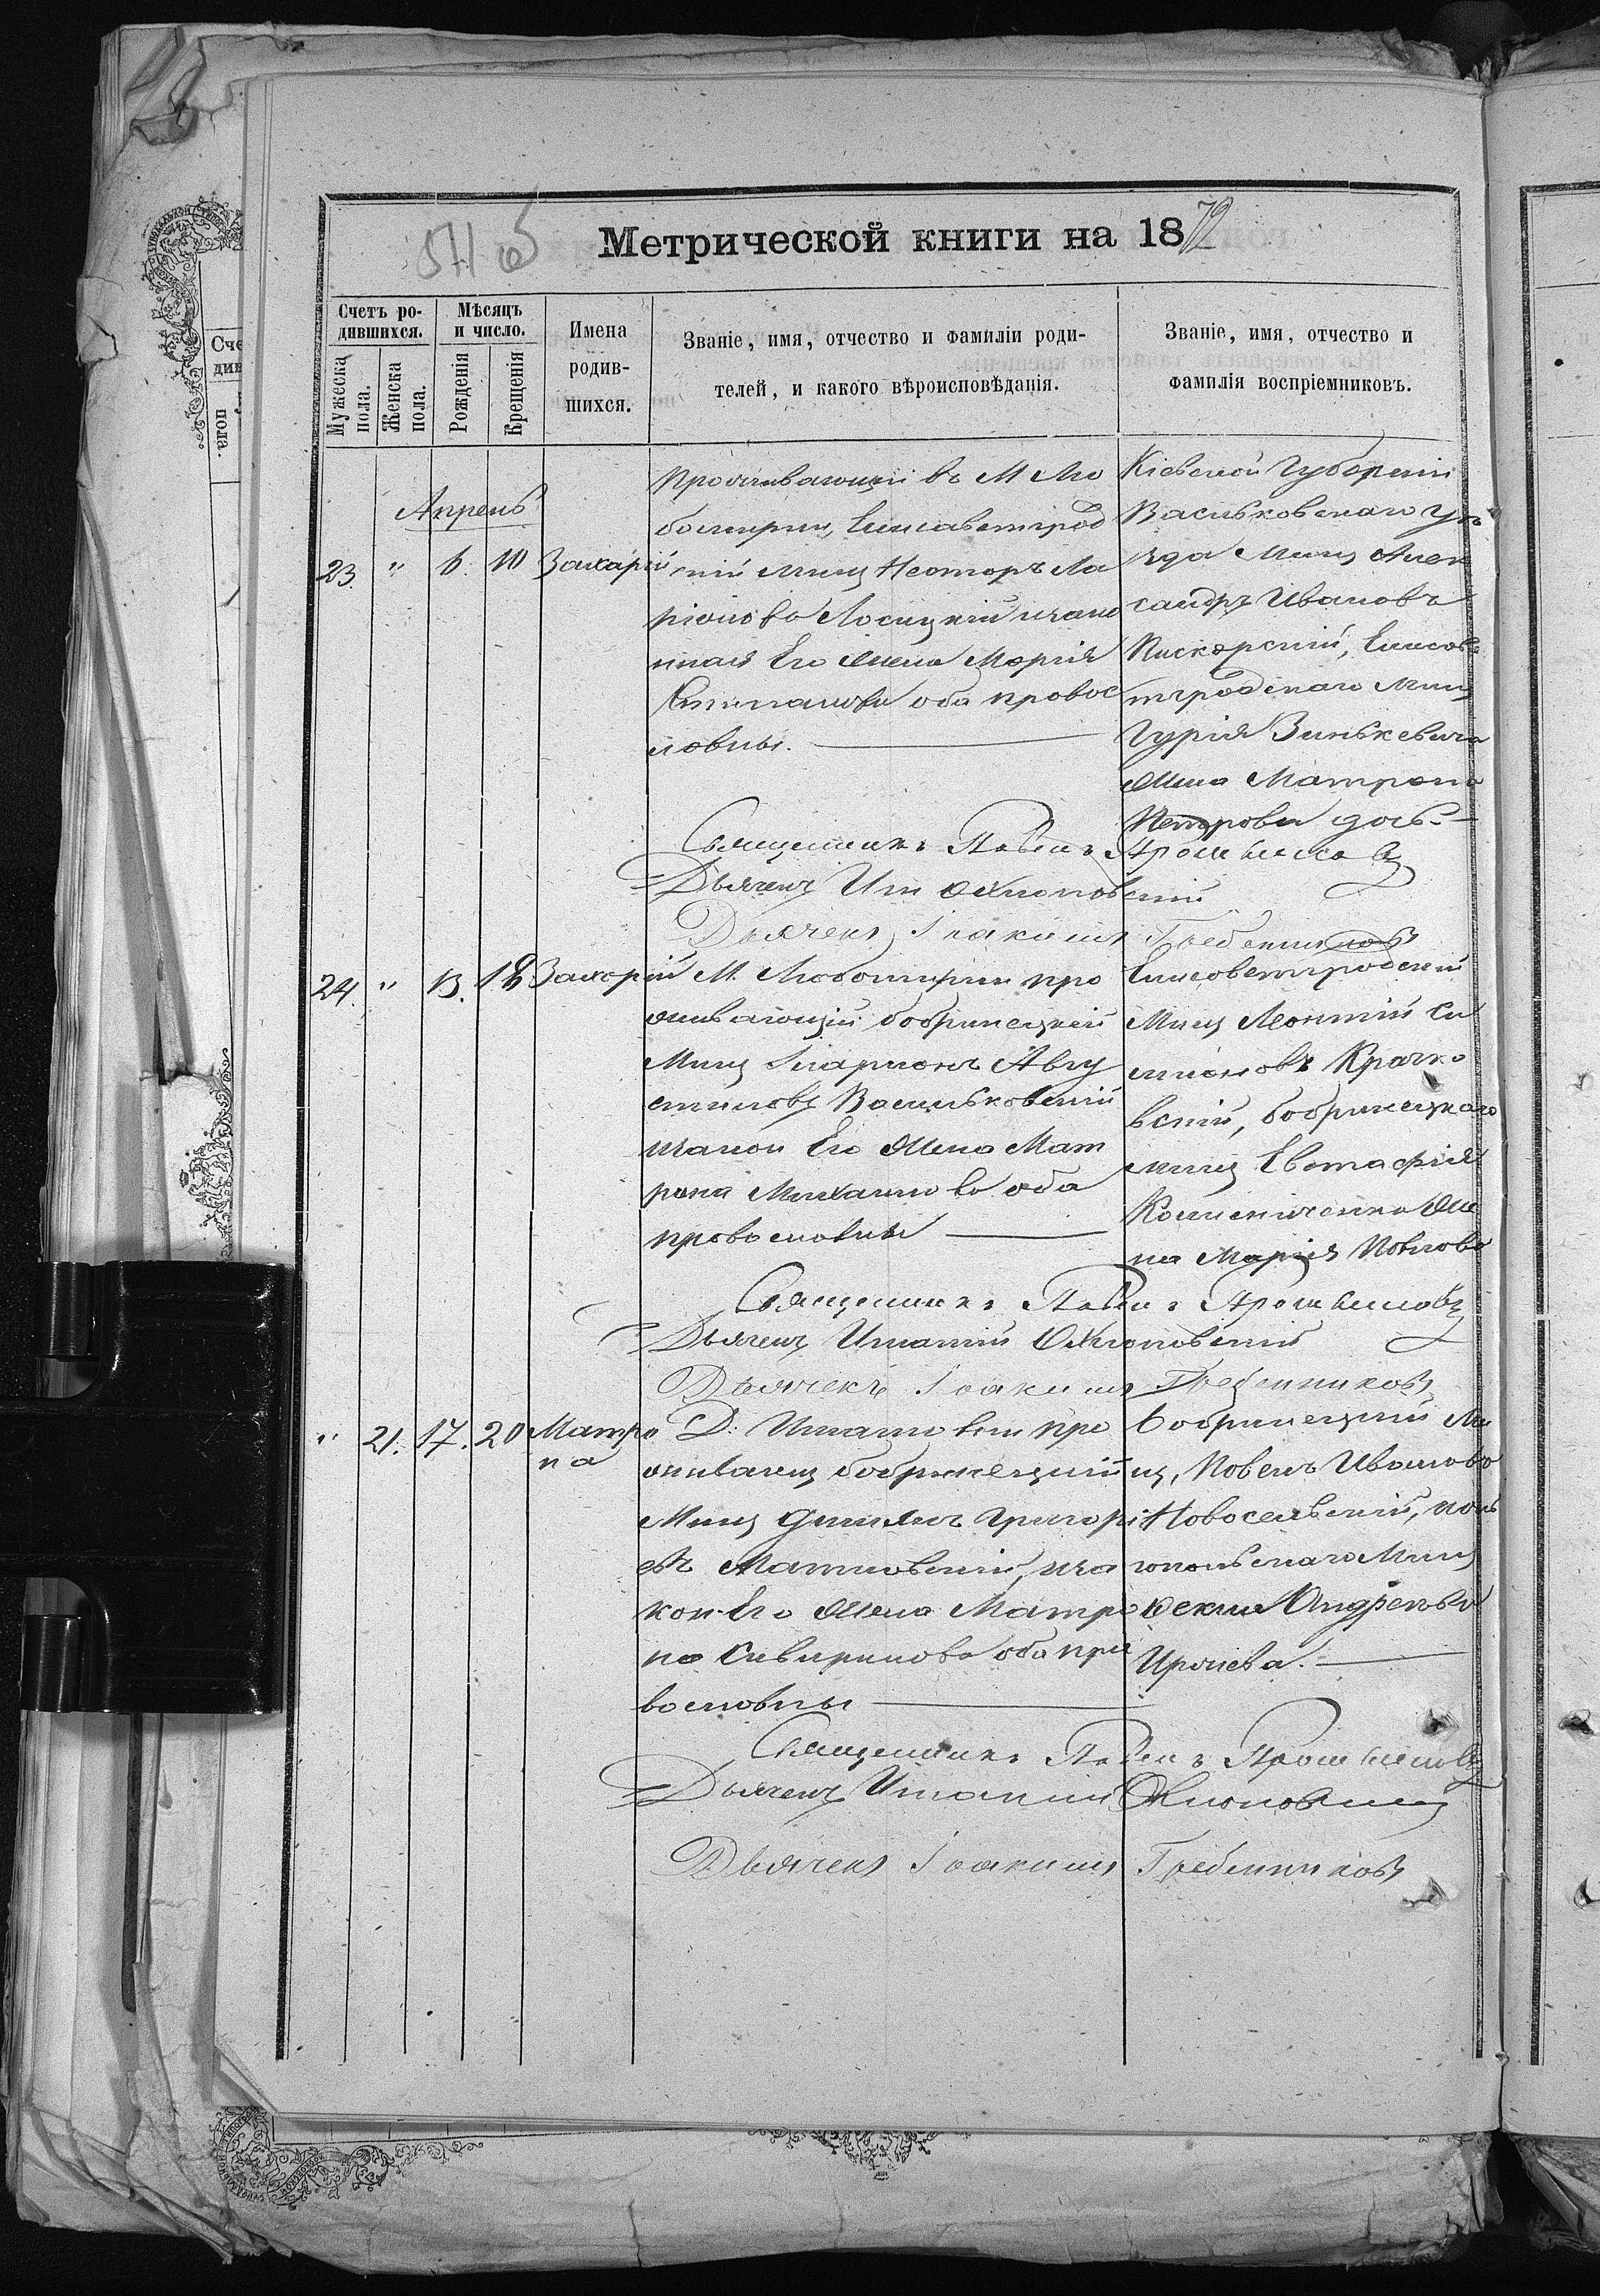 Метрической книги на 1872
Счетъ ро-
дившихся.
Мѣсяцъ
и число.
Мужеска
пола.
Женска
пола.
Рожденія
Крещенія
Имена
родив-
шихся.
Званіе, имя, отчество и фамиліи роди-
телей, и какого вѣроисповѣданія.
Званіе, имя, отчество и
фамилія воспріемниковъ.
Апрель
23. " 6. 10 Захарій
Проживающій въ М Лю
бомирки, Елисаветград
скій мищ Несторъ Ла
ріонова Лосицкій и закон
ная Его жена Марія
Степанова оба правос
лавны.
Кіевской Губерніи
Васильковскаго Уѣ
зда мищ Алек
сандръ Ивановъ
Пискорскій, Елисав
тградскаго мищ
Гурія Зинькевича
жена Матрона
Петрова дочь
Священникъ Павелъ
Дьячекъ
Дьячекъ Іоакимъ Гребенниковъ
24. " 13. 18 Захарій
М. Любомирки про
живающій бобринецкій
Мищ Иларионъ Авгу
стиновъ Васильковскій
закон Его жена Мат
рона Михаилова оба
православны
Елисаветградскій
Мищ Леонтій Си
мионовъ Крачко
вскій, бобринецкаго
мищ Евстафія
же
на Марія Павлова
Священникъ Павелъ
Дьячекъ Игнатій
Дьячекъ Іоакимъ Гребенниковъ
" 21. 17. 20 Матро
на
Д. Игнатовки про
живающ бобринецкій
Мищ Григорі
евъ Матковскій, за
кон Его жена Матро
на Сиверинова оба пра
вославны
Бобринецкій Ми
щ, Павелъ Иванова
Новосельскій, 
Мищ
Андреева
Священникъ Павелъ
Дьячекъ Игнатій
Дьячекъ Іоакимъ Гребенниковъ